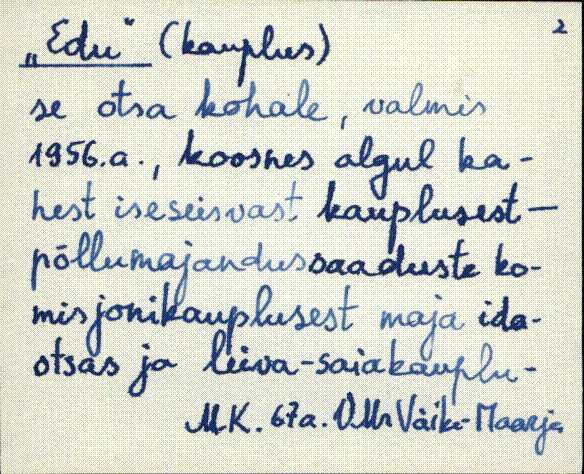 2
„Edu“ (kauplus)
se otsa kohale, valmis
1956.a., koosnes algul ka-
hest iseseisvast kauplusest—
põllumajandussaaduste ko-
misjonikauplusest maja ida-
otsas ja leiva-saiakauplu-
M.K. 67a. V.Mr Väike-Maarja